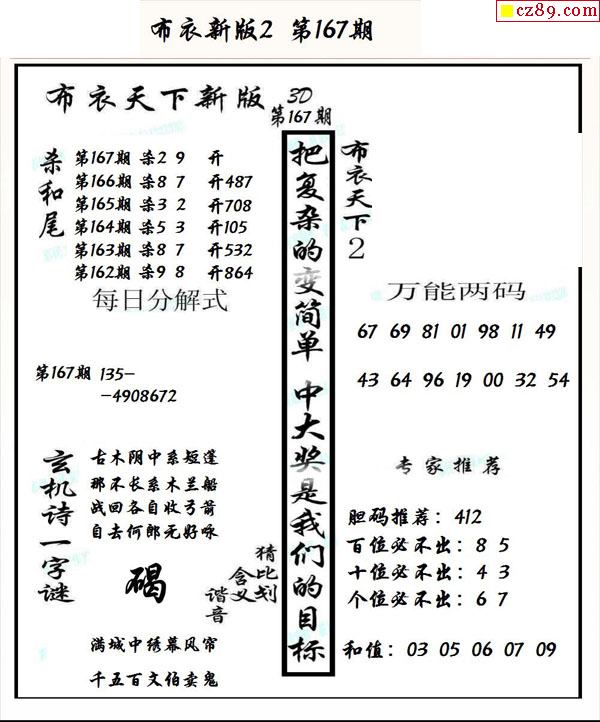 cz89.com
布衣新版2 第167期
布衣天下新版 3D
第167期
杀和尾
第167期 杀2 9 开
第166期 杀8 7 开487
第165期 杀3 2 开708
第164期 杀5 3 开105
第163期 杀8 7 开532
第162期 杀9 8 开864
每日分解式
第167期 135-
-4908672
玄机诗一字谜
古木阴中系短篷
那不长系木兰船
战回各自收弓箭
自去何郎无好咏
碣
猜比划
含义
谐音
满城中绣幕风帘
千五百文伯卖鬼
把复杂的变简单 中大奖是我们的目标
布衣天下2
万能两码
67 69 81 01 98 11 49
43 64 96 19 00 32 54
专家推荐
胆码推荐：412
百位必不出：8 5
十位必不出：4 3
个位必不出：6 7
和值：03 05 06 07 09